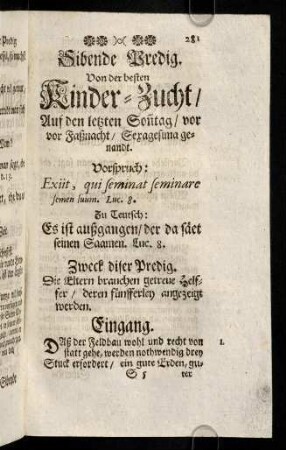 281
Sibende Predig.
Von der besten
Kinder-Zucht/
Auf den letzten Soñtag/ vor
vor Faßnacht/ Sexagesima ge-
nandt.
Vorspruch:
Exiit, qui seminat seminare
semen suum. Luc. 8.
Zu Teutsch:
Es ist außgangen/der da säet
seinen Saamen. Luc. 8.
Zweck diser Predig.
Die Eltern brauchen getreue Helf-
fer/ deren fünfferley angezeigt
werden.
Eingang.
DAß der Feldbau wohl und recht von 1.
statt gehe, werden nothwendig drey
Stuck erfordert/ ein gute Erden, gu-
S 5 ter